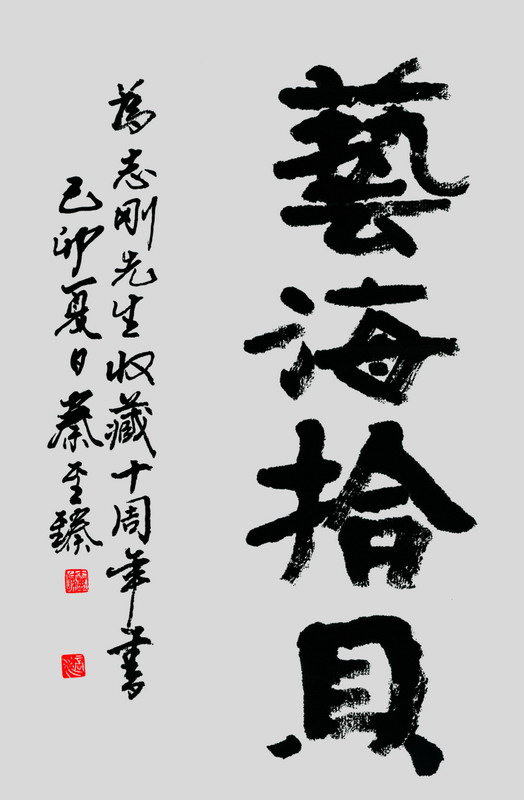 藝海拾貝
為志刚先生收藏十周年書
己卯夏日秦